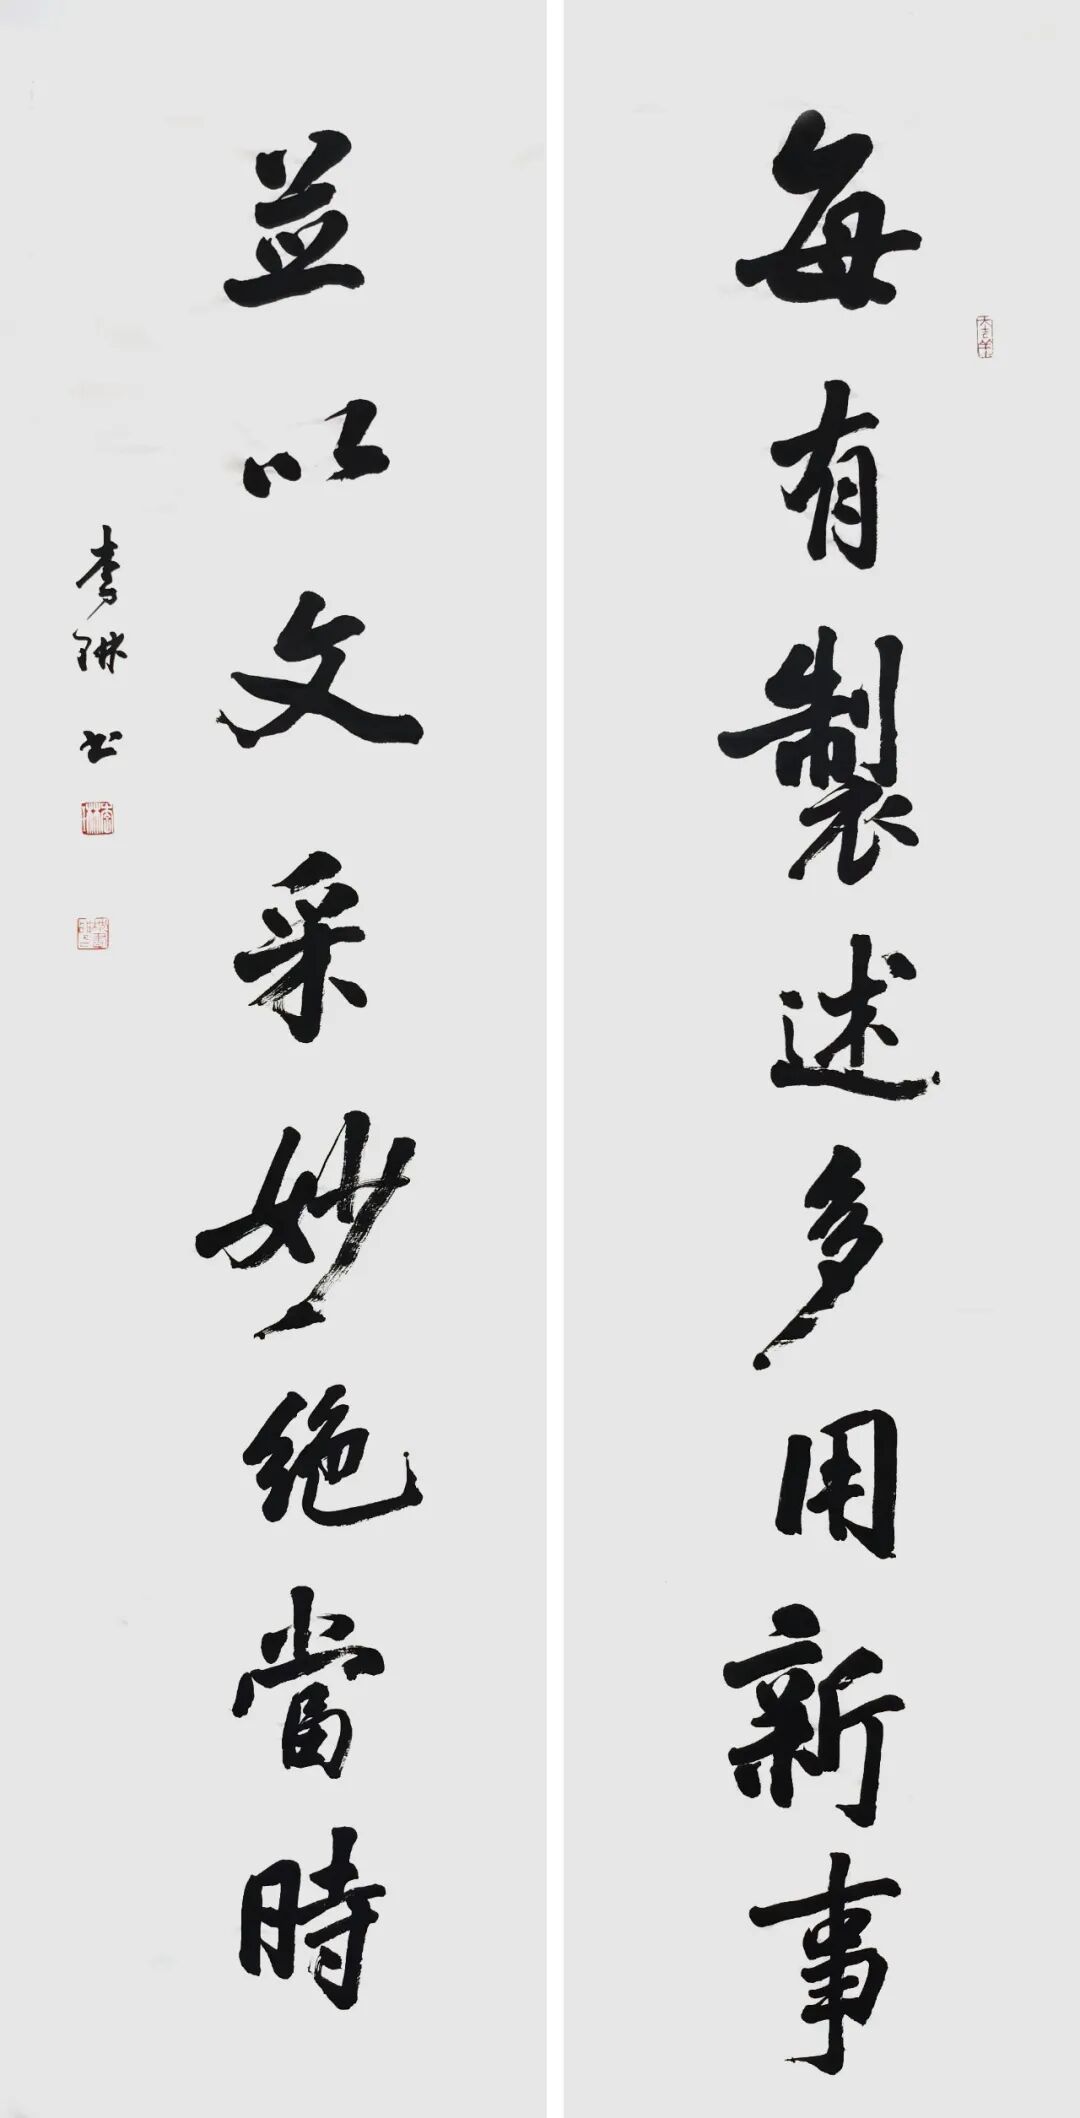 每有製述多用新事
并以文采妙绝當時
李琳书